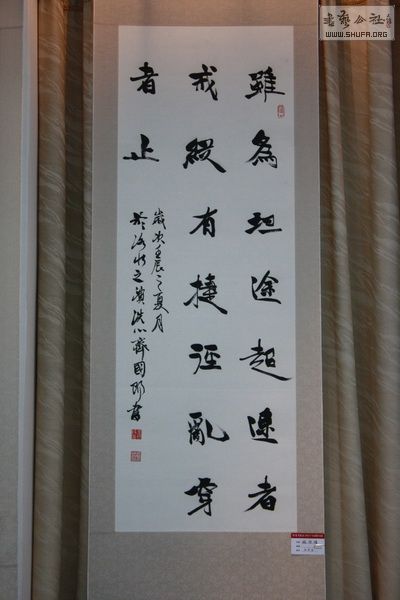 雖為坦途超速者
戒縱有捷徑亂穿
者止
歲次壬辰之夏月
於洛水之濱洗心齋國邦書
書藝公社
WWW.SHUFA.ORG